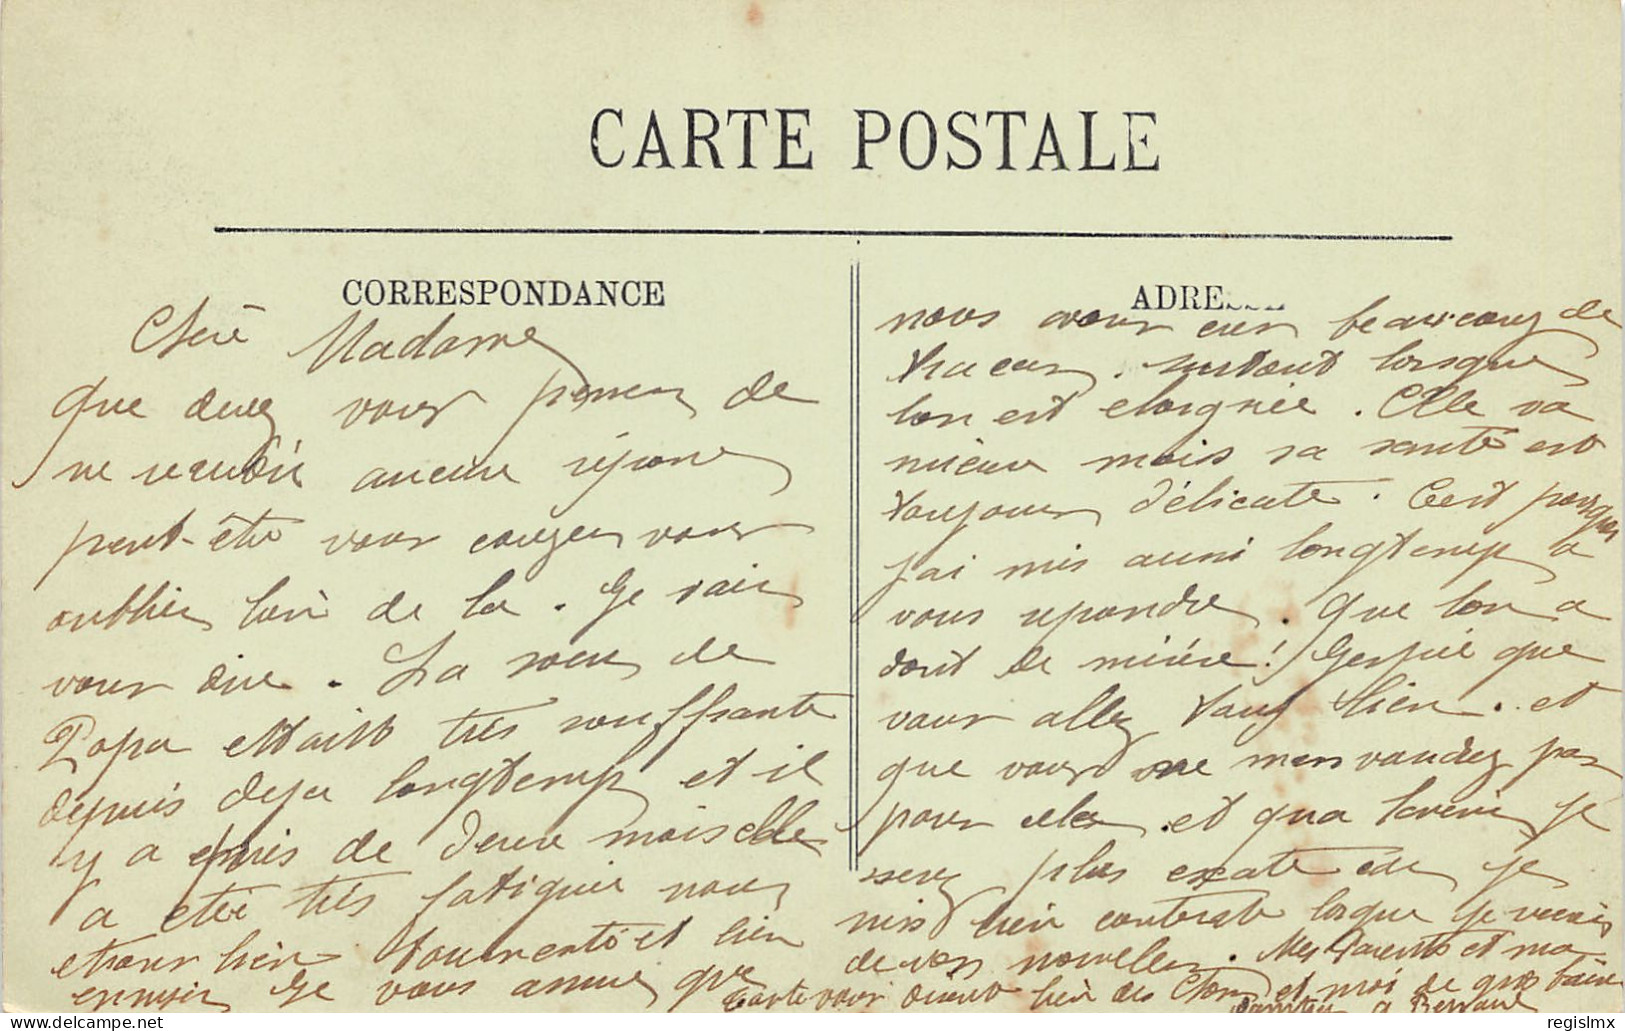 CARTE POSTALE
CORRESPONDANCE
Chère Madame
Que devez vous penser de
ne recevoir aucune réponse
peut-être vous croyez vous
oublier loin de la. Je vais
vous dire. La sœur de
Papa ettait très souffrante
depuis deja longtemp et il
y a epuis de deux mois elle
a etée très fatiguée nous
etions bien tourmenté et bien
ennuyer Je vous assure que
ADRESSE
nous avons eus beaucoup de
tracas. surtout lorsque
lon est eloignée. Elle va
mieux mais sa santé est
toujours délicate. Cest pourquoi
j'ai mis aussi longtemp a
vous repondre. Que lon a
dont de misère! Jespére que
vous allez tous bien. et
que vous ne men voudrez pas
pour cela. et qua lavenir je
serez plus exacte car je
suis bien contente lorsque je recois
de vos nouvelles. Mes Parents et ma
Tante vous disent bien des choses et moi de gros baisers
a Bessan
regislmx